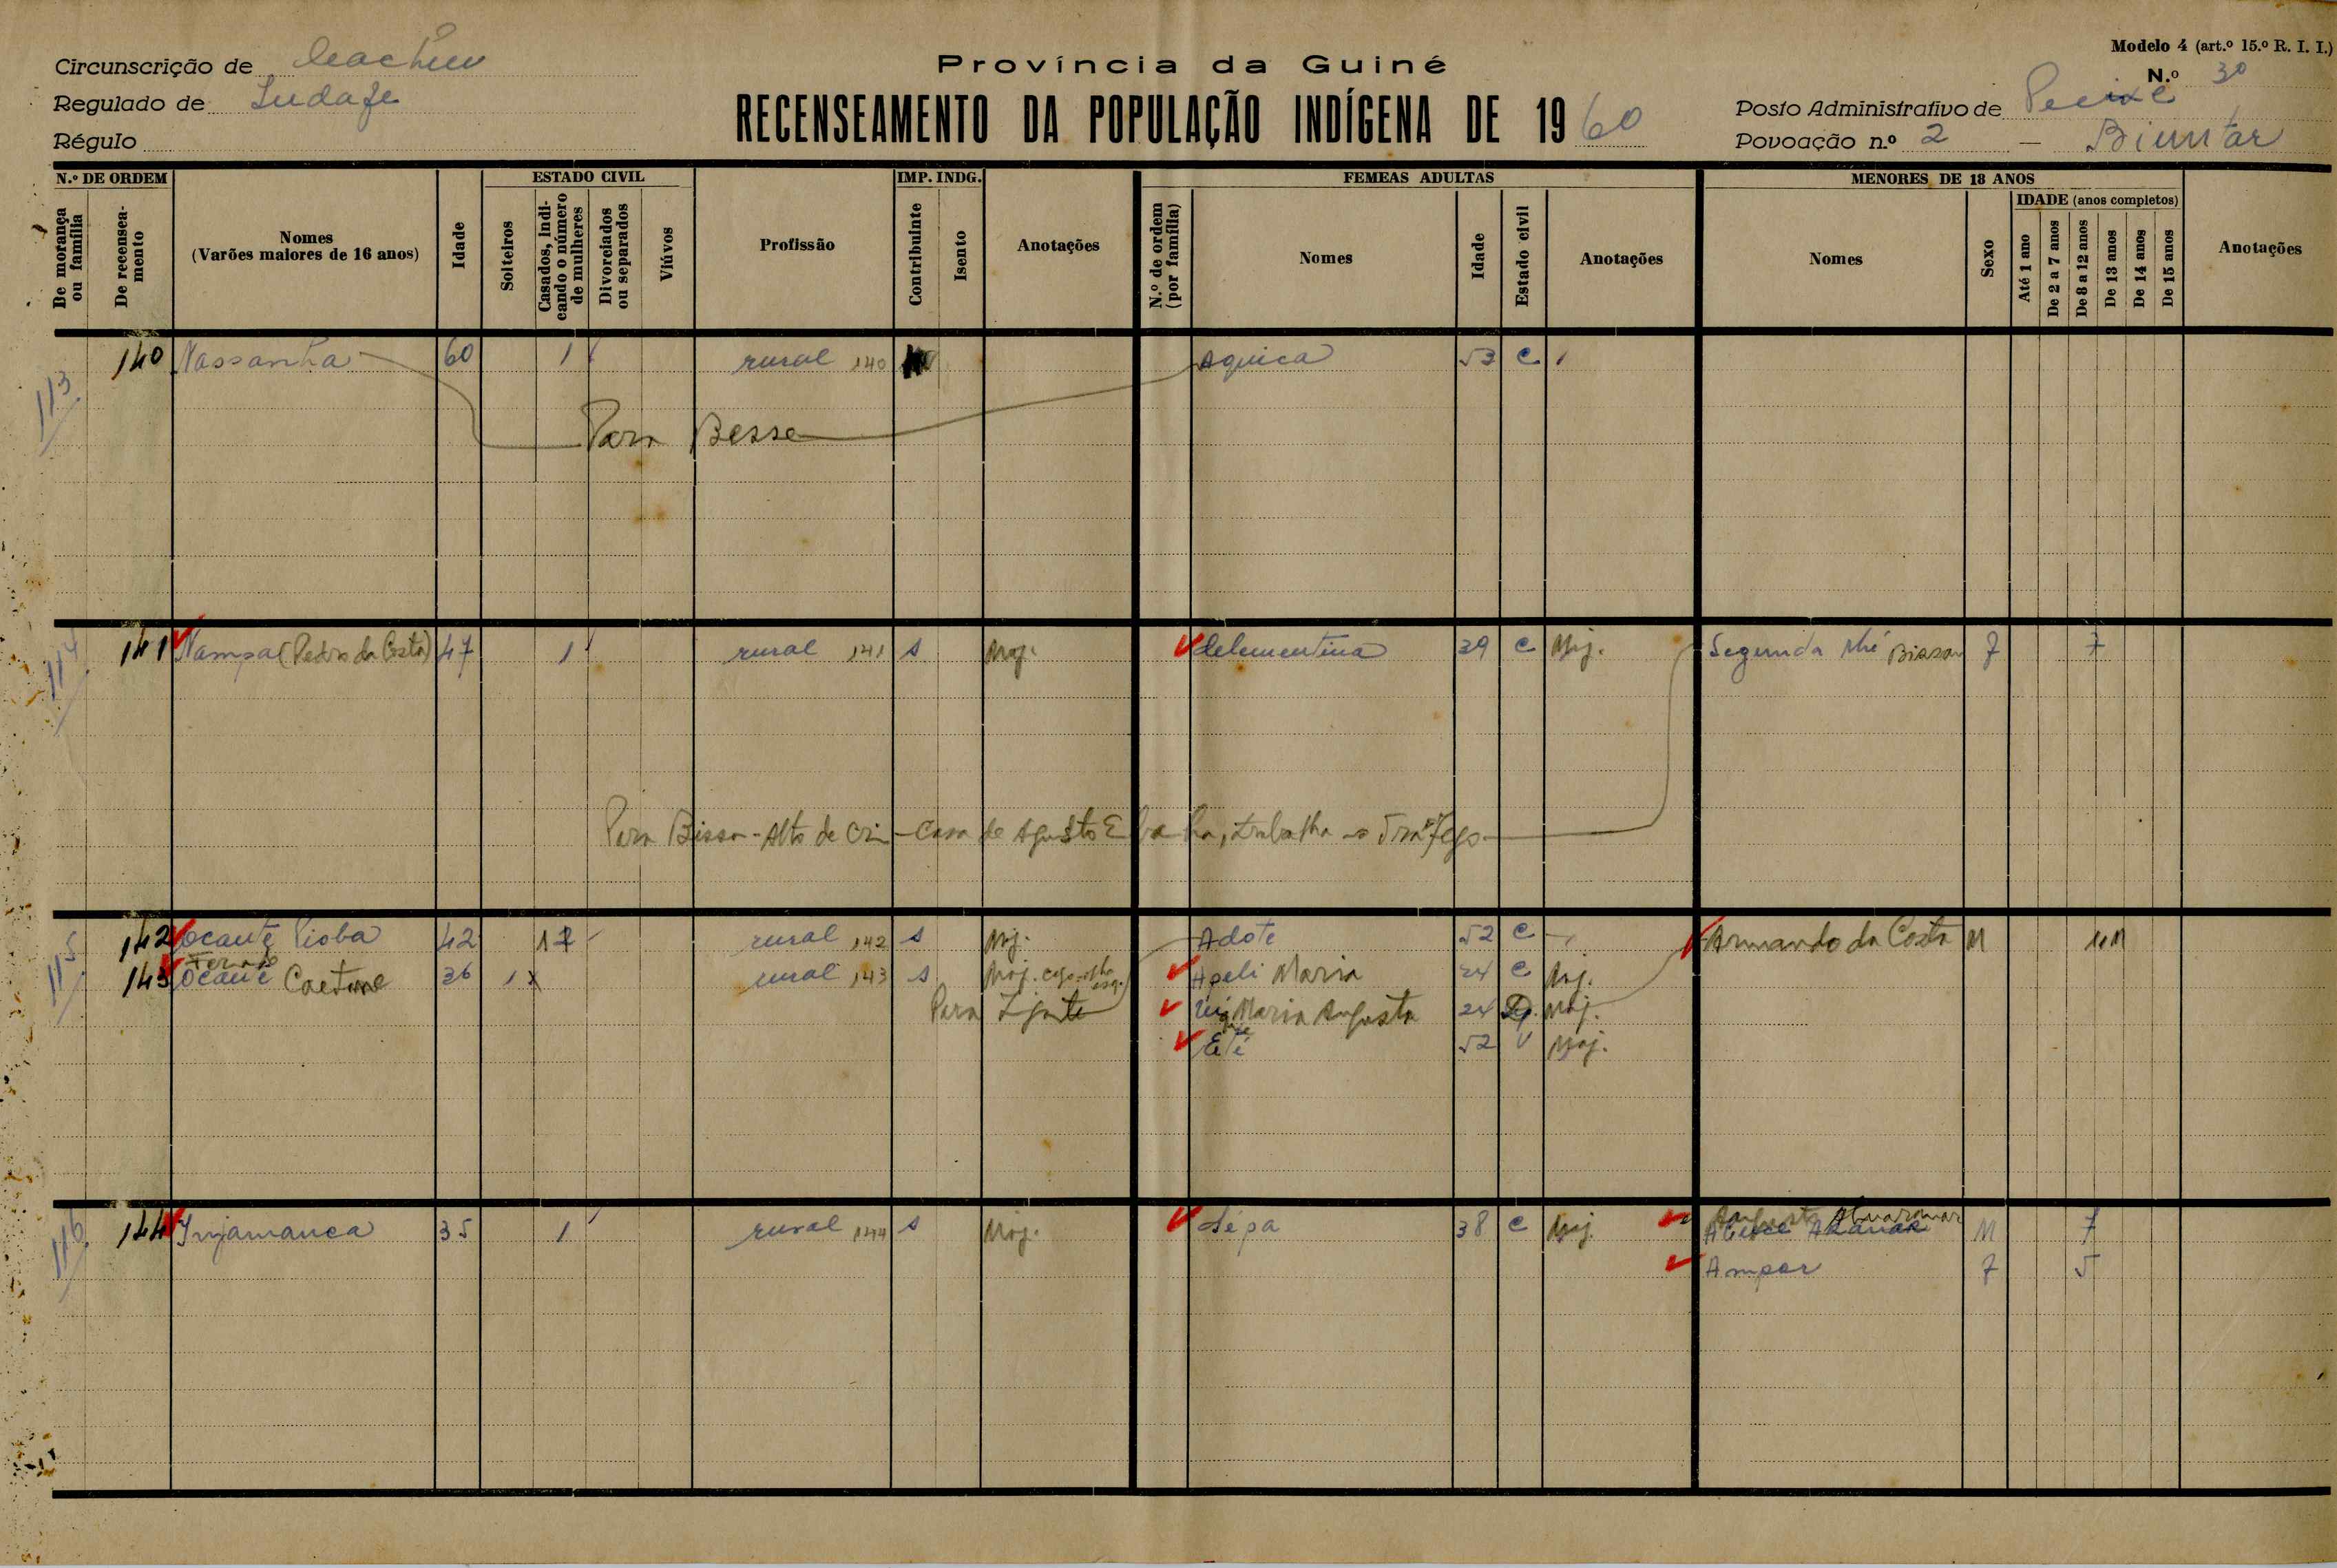 Modelo 4 (art.º 15.º R. I. I.)
Circunscrição de Cacheu
Província da Guiné
N.º 30
Regulado de
RECENSEAMENTO DA POPULAÇÃO INDÍGENA DE 1960
Posto Administrativo de Pecixe
Régulo
Povoação n.º 2 —
N.º DE ORDEM
De morança ou família
De recenseamento
Nomes
(Varões maiores de 16 anos)
Idade
ESTADO CIVIL
Solteiros
Casados, indicando o número de mulheres
Divorciados ou separados
Viúvos
Profissão
IMP. INDG.
Contribuinte
Isento
Anotações
FEMEAS ADULTAS
N.º de ordem (por família)
Nomes
Idade
Estado civil
Anotações
MENORES DE 18 ANOS
Nomes
Sexo
IDADE (anos completos)
Até 1 ano
De 2 a 7 anos
De 8 a 12 anos
De 13 anos
De 14 anos
De 15 anos
Anotações
113 140 Nassanha 60 1 rural 140 Aquica 53 C
Para Besse
114 141 Nampa (Pedro da Costa) 47 1 rural 141 s Clementina 39 C Segunda Bissau F 7
Para Bissa - Alto de Crim - Casa de Agusto trabalha no Tráfego
115 142 Ocante Pioba 42 1 rural 142 s Adote 52 C Armando da Costa M
143 Ocante Caetano 36 1 rural 143 s Apeli Maria 24 C
Para Maria Augusta 24
Eté 52 V
116 144 Injamanca 35 1 rural 144 s Sépa 38 C M 7
Ampar F 5